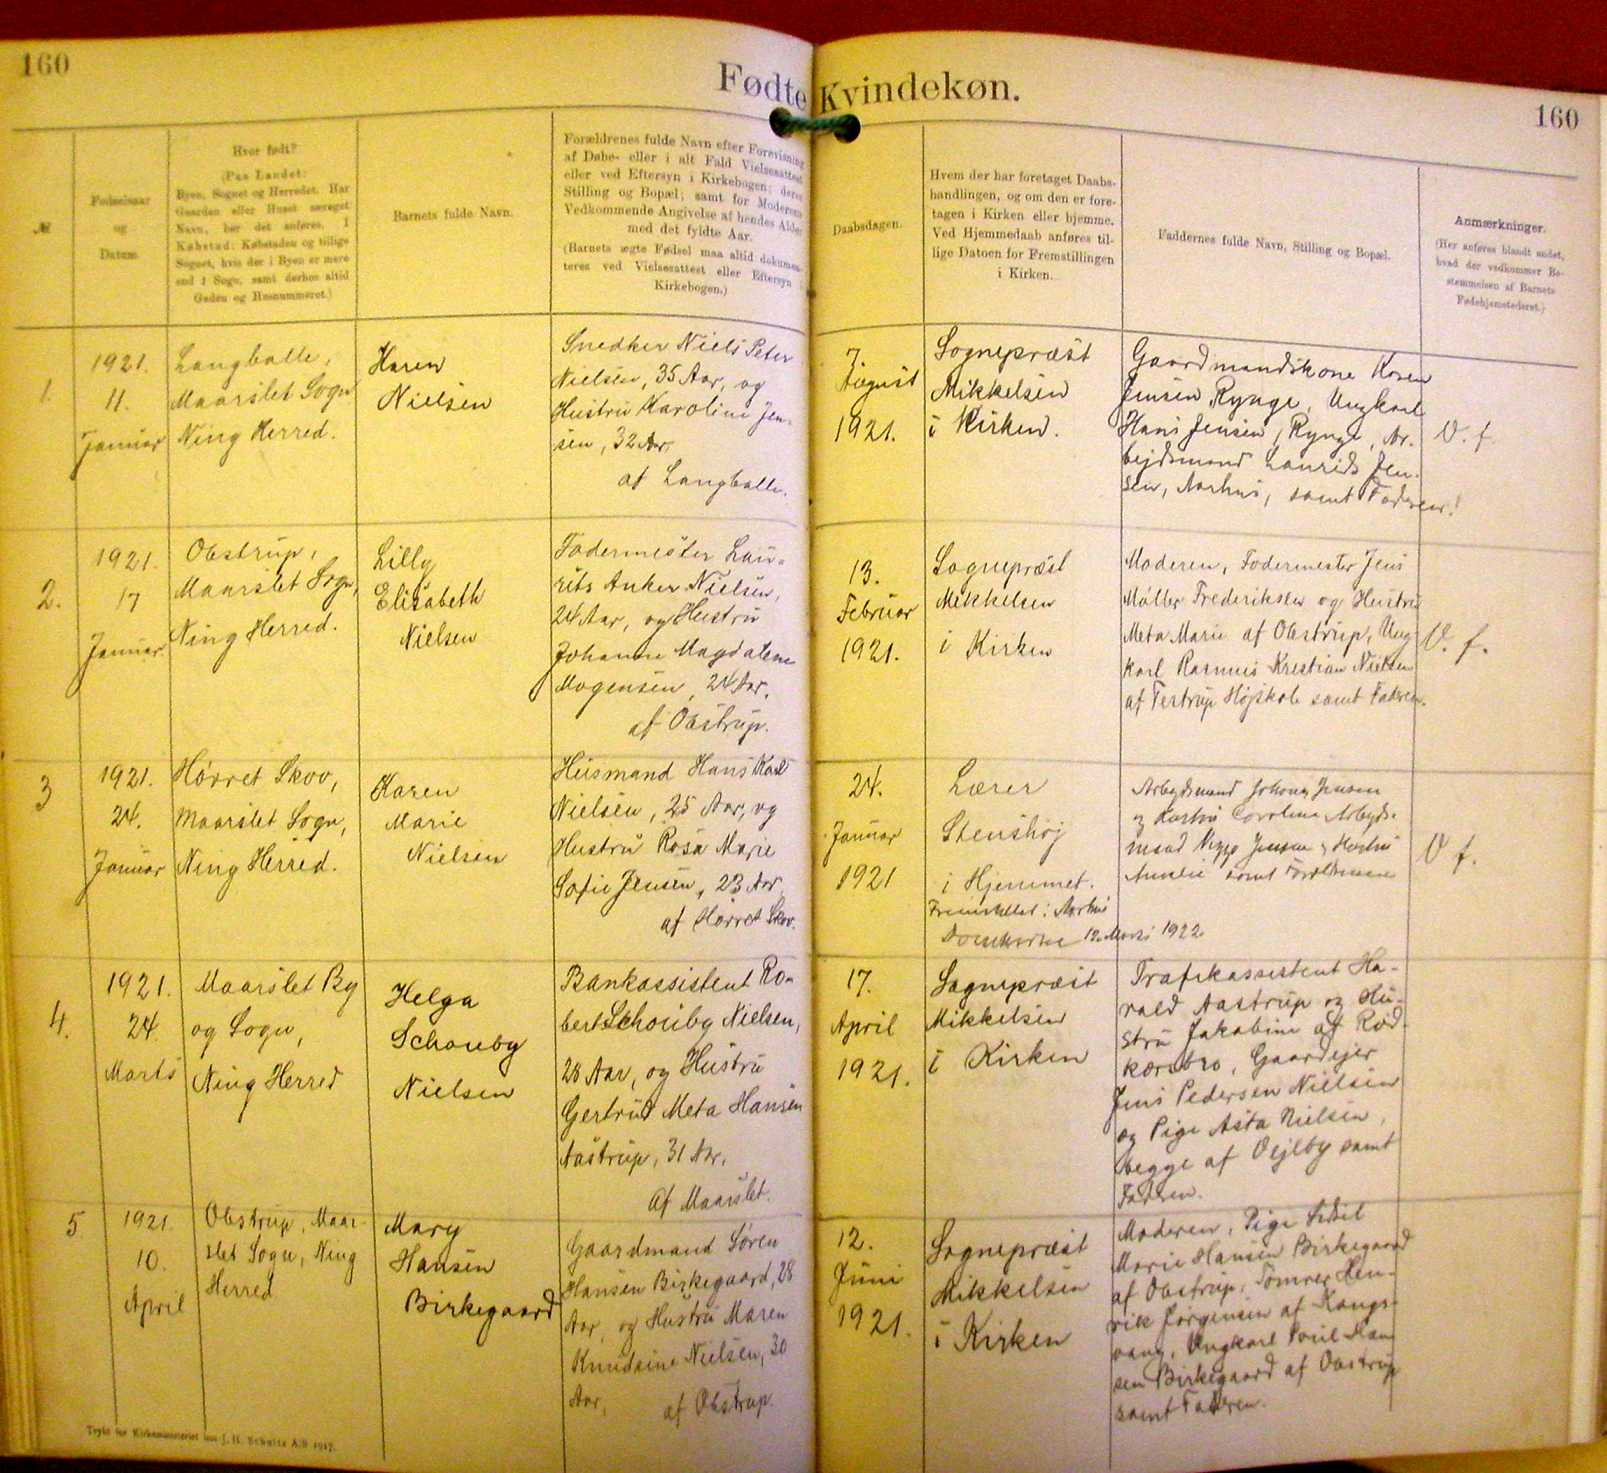 160
Fødte Kvindekøn.
160
№
Fødselsaar
og
Datum.
Hvor født?
(Paa Landet:
Byen, Sognet og Herredet. Har
Gaarden eller Huset særeget
Navn, bør det anføres. I
Købstad: Købstaden og tillige
Sognet, hvis der i Byen er mere
end 1 Sogn, samt derhos altid
Gaden og Husnummeret.)
Barnets fulde Navn.
Forældrenes fulde Navn efter Forevisning
af Døbe- eller i alt Fald Vielsesattest
eller ved Eftersyn i Kirkebogen; deres
Stilling og Bopæl; samt for Moderens
Vedkommende Angivelse af hendes Alder
med det fyldte Aar.
(Barnets ægte Fødsel maa altid dokumen-
teres ved Vielsesattest eller Eftersyn i
Kirkebogen.)
Daabsdagen.
Hvem der har foretaget Daabs-
handlingen, og om den er fore-
tagen i Kirken eller hjemme.
Ved Hjemmedaab anføres til-
lige Datoen for Fremstillingen
i Kirken.
Faddernes fulde Navn, Stilling og Bopæl.
Anmærkninger.
(Her anføres blandt andet,
hvad der vedkommer Be-
stemmelsen af Barnets
Fødehjemstederet.)
1.
1921.
11.
Januar
Langballe,
Maarslet Sogn
Ning Herred.
Karen
Nielsen
Snedker Niels Peter
Nielsen, 35 Aar, og
Hustru Karoline Jen-
sen, 32 Aar,
af Langballe.
7.
August
1921.
Sognepræst
Mikkelsen
i Kirken.
Gaardmandskone Karen
Jensen, Rynge, Ungkarl
Hans Jensen, Rynge, Ar-
bejdsmand Laurids Jen-
sen, Aarhus, samt Faderen.
V. f.
2.
1921.
17
Januar
Obstrup,
Maarslet Sogn,
Ning Herred.
Lilly
Elisabeth
Nielsen
Fodermester Lau-
rits Anker Nielsen,
24 Aar, og Hustru
Johanne Magdalene
Mogensen, 24 Aar,
af Obstrup.
13.
Februar
1921.
Sognepræst
Mikkelsen
i Kirken
Moderen, Fodermester Jens
Møller Frederiksen og Hustru
Meta Marie af Obstrup, Ung-
karl Rasmus Krestian Nielsen
af Testrup Højskole samt Faderen.
V. f.
3
1921.
24.
Januar
Hørret Skov,
Maarslet Sogn,
Ning Herred.
Karen
Marie
Nielsen
Husmand Hans Karl
Nielsen, 25 Aar, og
Hustru Rosa Marie
Sofie Jensen, 23 Aar
af Hørret Skov.
24.
Januar
1921
Lærer
Stenshøj
i Hjemmet.
Fremstillet i Aarhus
Domkirke 12. Marts 1922
Arbejdsmand Johannes Jensen
og Hustru Caroline Arbejds-
mand Jensen og Hustru
Amelie samt Forældrene
V f.
4.
1921.
24.
Marts
Maarslet By
og Sogn,
Ning Herred
Helga
Schouby
Nielsen
Bankassistent Ro-
bert Schouby Nielsen,
28 Aar, og Hustru
Gertrud Meta Hansen
Aastrup, 31 Aar,
af Maarslet.
17.
April
1921.
Sognepræst
Mikkelsen
i Kirken
Trafikassistent Ha-
rald Aastrup og Hu-
stru Jakobine af Rød-
kærsbro, Gaardejer
Jens Pedersen Nielsen
og Pige Asta Nielsen,
begge af Vejlby samt
Faderen.
5
1921.
10.
April
Obstrup, Maar-
slet Sogn, Ning
Herred
Mary
Hansen
Birkegaard
Gaardmand Søren
Hansen Birkegaard, 28
Aar, og Hustru Maren
Knudsine Nielsen, 30
Aar,
af Obstrup.
12.
Juni
1921.
Sognepræst
Mikkelsen
i Kirken
Moderen, Pige Sidsel
Marie Hansen Birkegaard
af Obstrup, Tømrer Hen-
rik Jørgensen af Kongs-
vang, Ungkarl Poul Han-
sen Birkegaard af Obstrup
samt Faderen.
Trykt for Kirkeministeriet hos J. H. Schultz A/S 1917.